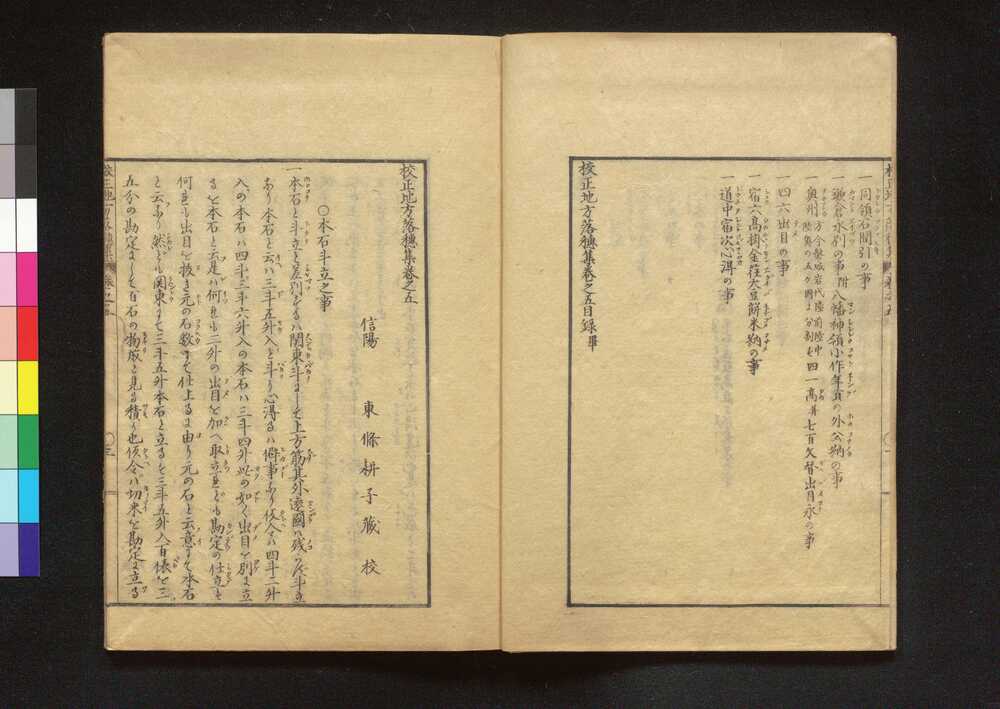 一同領石間引の事
一鎌倉永別の事附八幡神領小作年貢の外公納の事
一奥州方今磐城岩代陸前陸中陸奥の五ケ国ニ分割す四一高并七百文替出目永の事
一四六出目の事
一宿六高掛金荏大豆餅米納の事
一道中宿次心得の事
校正地方落穂集巻之五目録畢
校正地方落穂集巻之五
信陽 東條耕子蔵校
〇本石斗立之事
一本石と斗立と差別するハ関東斗ニして上方筋其外遠国ハ残らす斗立
あり本石と云ハ三斗五升入と斗り心得るハ僻事あり仮令ハ四斗二升
入の本石ハ四斗三斗六升入の本石ハ三斗四升此の如く出目を別ニ立
るを本石と云是ハ何れも二升の出目を加へ取立れとも勘定の仕立ハ
何れも出目を抜き元の石数にて仕上るに由り元の石と云意にて本石
と云あり然とも関東にて三斗五升本石と立るを三斗五升入百俵を三
五分の勘定にして百石の物成と見る積り也仮令ハ切米を勘定に立る